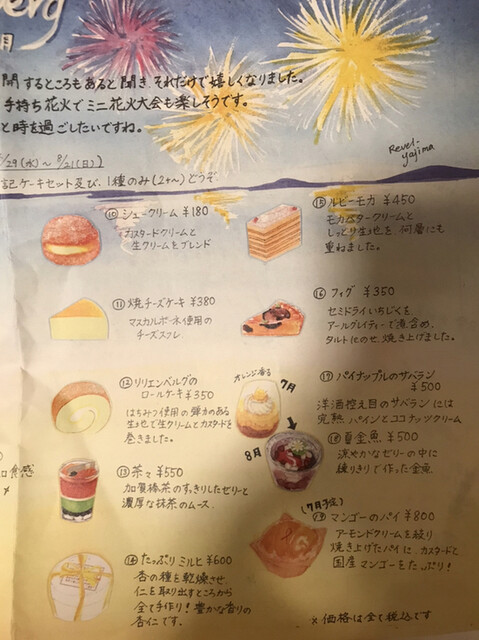 berg
月
開するところもあると聞き、それだけで嬉しくなりました。
手持ち花火でミニ花火大会も楽しそうです。
と時を過ごしたいですね。
/29(水)〜8/21(日)
Revel-yajima
記ケーキセット及び、1種のみ(2ヶ〜)どうぞ
⑩ シュークリーム ¥180
カスタードクリームと
生クリームをブレンド
⑪ 焼チーズケーキ ¥380
マスカルポーネ使用の
チーズスフレ
⑫ リリエンベルグの
ロールケーキ ¥350
はちみつ使用の弾力のある
生地で生クリームとカスタードを
巻きました。
食感
⑬ 茶々 ¥550
加賀棒茶のすっきりしたゼリーと
濃厚な抹茶のムース.
⑭ たっぷりミルヒ ¥600
杏の種を乾燥させ、
仁を取り出すところから
全て手作り!豊かな香りの
杏仁です.
⑮ ルビーモカ ¥450
モカバタークリームと
しっとり生地を何層にも
重ねました。
⑯ フィグ ¥350
セミドライいちじくを
アールグレイティーで煮含め、
タルトにのせ、焼き上げました。
オレンジ香る
7月
8月
⑰ パイナップルのサバラン
¥500
洋酒控え目のサバランには
完熟パインとココナッツクリーム
⑱ 夏金魚 ¥500
涼やかなゼリーの中に
練りきりで作った金魚
(7月予定)
⑲ マンゴーのパイ ¥800
アーモンドクリームを絞り
焼き上げたパイに、カスタードと
国産マンゴーをたっぷり!
×価格は全て税込です